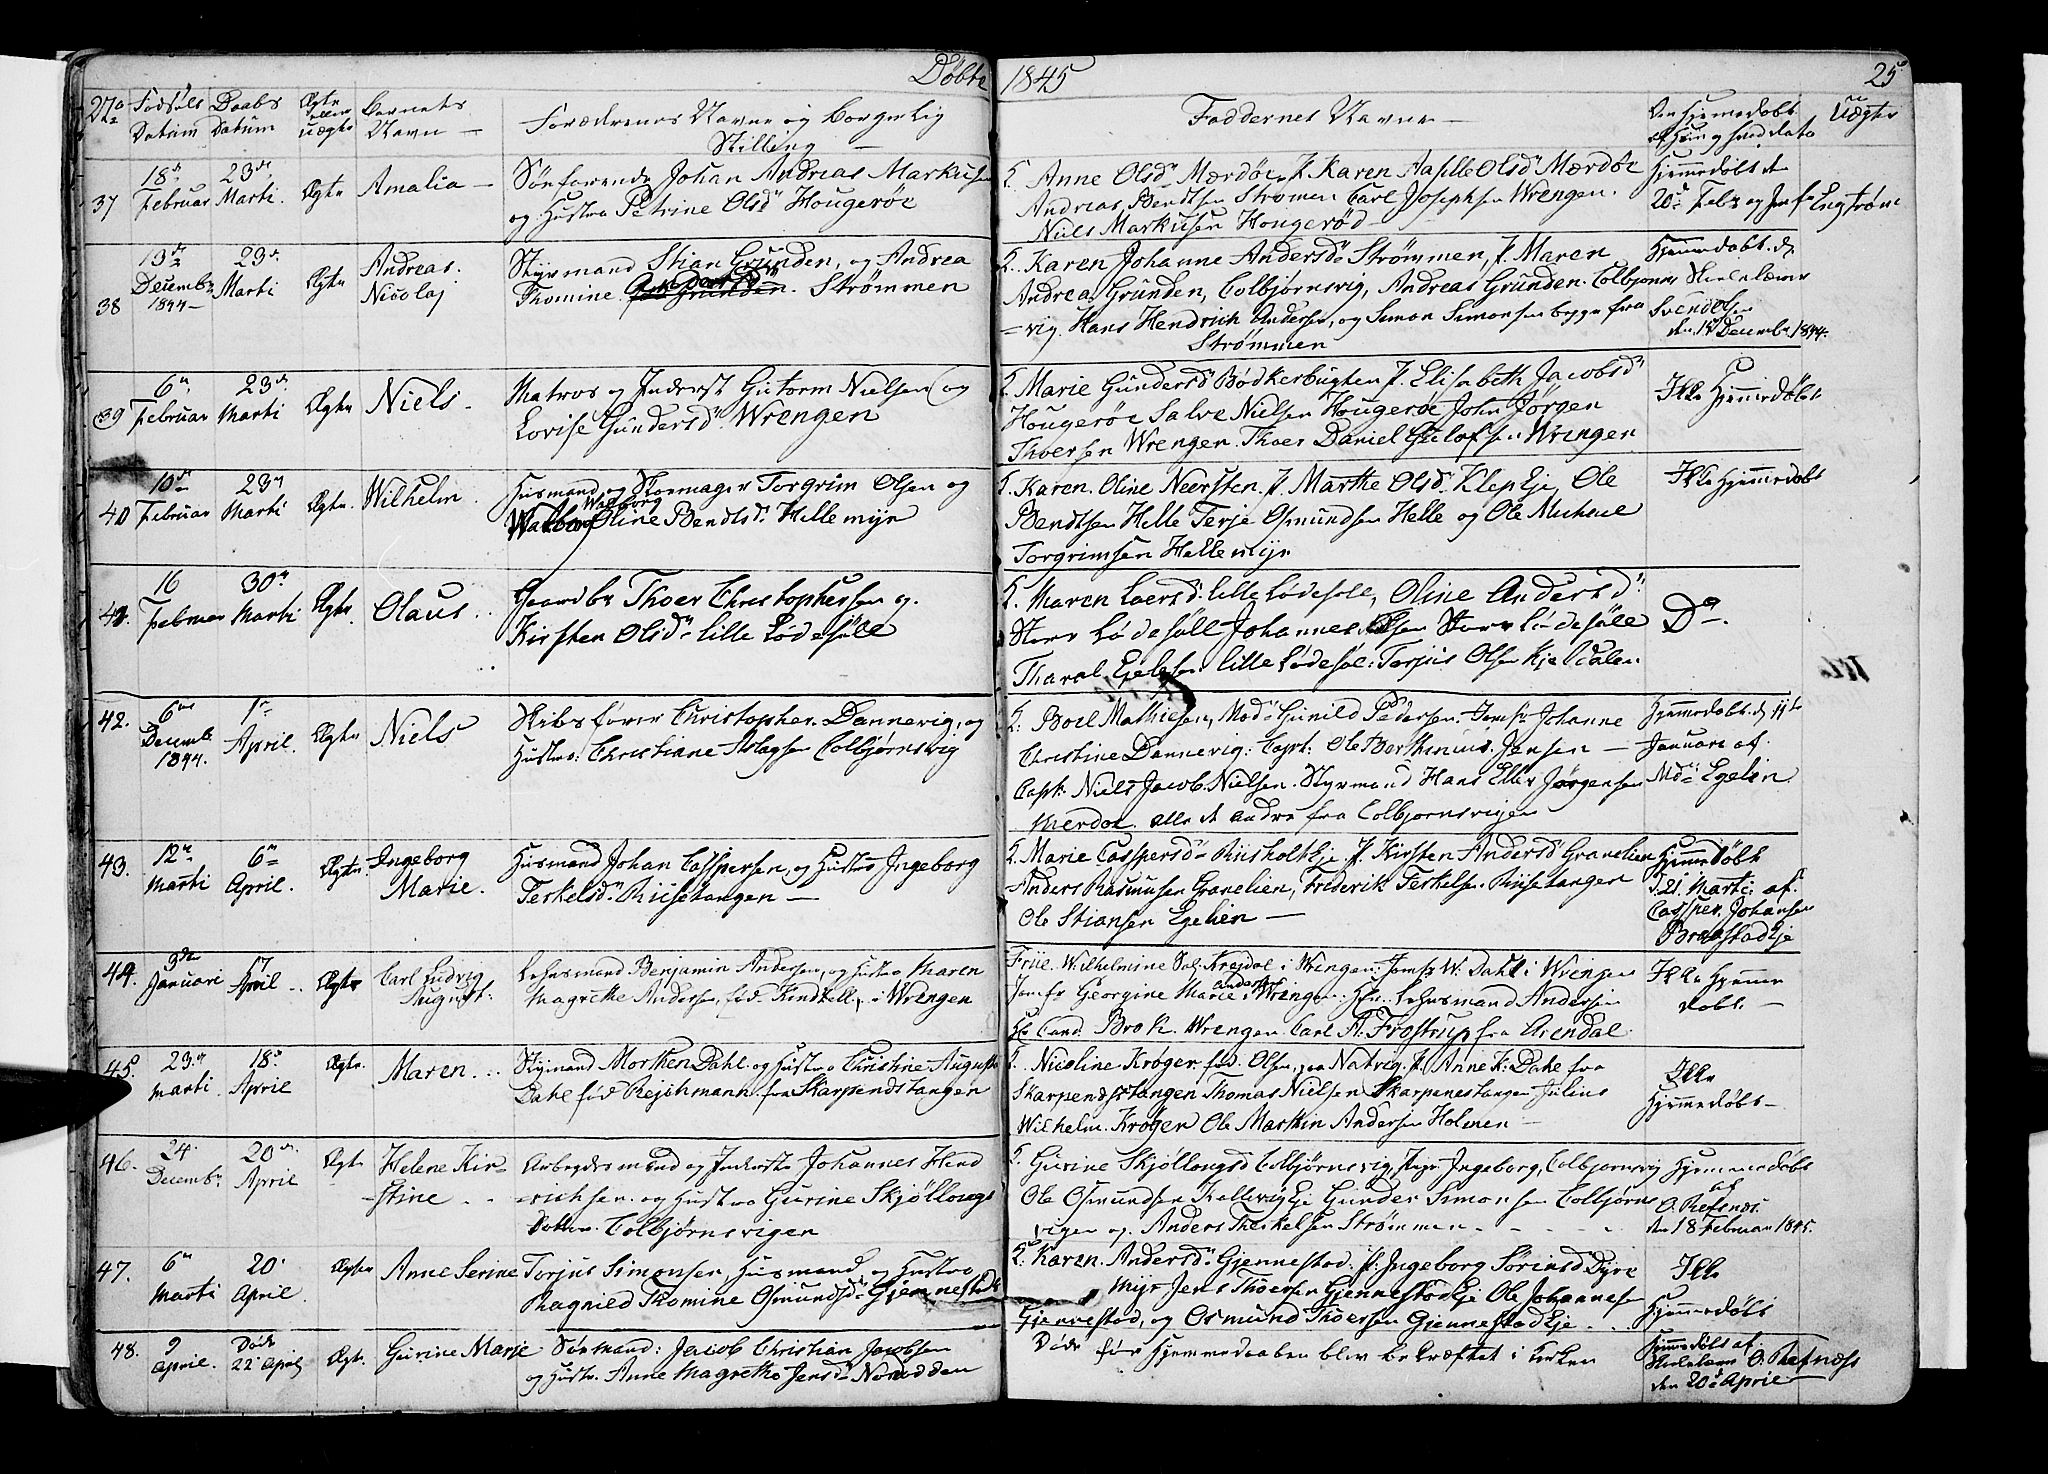 Døbte 1845 25
No Fødsels Datum Daabs Datum Ægte eller uægte Barnets Navn Forældrenes Navne og borgerlig Stilling
Faddernes Navne Om Hjemmedøbt Uægte
37 18de Februar 23de Marti. Ægte Amalia
Søefarende Johan Andreas Markusen
og Hustru Petrine Olsd. Hougerøe
Anne Olsd. Mærdøe, P. Karen Olsd. Mærdøe
Andreas Bendtsen Strømen Carl Josephsen Wrengen.
Niels Markusen Hougerød
Hjemmedøbt den
20de Febr og Jomfr Engstrøm
38 13de Decembr 1844 23de Marti Ægte Andreas Nicolaj
Styrmand Stian Grunden, og Andrea
Thomine Strømmen
Karen Johanne Andersd. Strømmen, P. Maren
Andrea Grunden, Colbjørnsvig, Andreas Grunden. Colbjørns
=vig. Hans Hendrich Andersen, og Simon Simonsen begge fra
Strømmen
Hjemmedøbt. d.
Skolelærer
Svendsen
den 15 Decembr 1844.
39 6te Februar 23de Marti Ægte Niels
Matros og Inderst Gutorm Nielsen og
Lovise Gundersd. Wrengen
Marie Gundersd. Bødkerbugten P. Elisabeth Jacobsd.
Hougerøe Salve Nielsen Hougerøe John Jørgen
Thorsen Wrengen. Thoer Daniel Wrengen
Ikke Hjemmedøbt
40 10de Februar 23de Marti Ægte. Wilhelm
Husmand og Skomager Torgrim Olsen og
Walborg Oline Bendtsd. Hellemyr
Karen Oline Neersten. P. Marthe Olsd. Klep Eje, Ole
Bendtsen Helle Terje Osmundsen Helle og Ole Michael
Torgrimsen Hellemyr
Ikke Hjemmedøbt
41. 16 Februar 30te Marti Ægte. Olaus
Gaardbr Thoer Christophersen og
Kirsten Olsd. lille Lødesøll
Maren Laersd. lille Lødesole, Oline Andersd.
Store Lødesøll Johannes Olsen Store Lødesøle
Tharal Egelsen lille Lødesøl. Torjus Olsen
Do.
42. 6te Decemb. 1844. 1ste April. Ægte Niels
Skibsfører Christopher Dannevig, og
Hustru: Christiane Aslagsen Colbjørnsvig
Boel Mathiesen, Mad. Gunild Pedersen. Jomfr Johanne
Christine Dannevig: Capt: Ole Jensen
Capt. Niels Jacob Nielsen. Styrmand Hans Eller Jørgensen
Merdøe alle de andre fra Colbjørnsvigen
Hjemmedøbt. d. 11te
Januari af.
Md. Egelien
43. 12te Marti 6te April. Ægte. Ingeborg Marie.
Husmand Johan Casspersen, og Hustru Ingeborg
Terkelsd. Riisetangen
Marie Casspersd. Riisholt Eje P. Kirsten Andersd. Granelien
Anders Rasmusen Granelien, Frederik Terkelsen Riisetangen
Ole Stiansen Egelien
Hjemmedøbt
d. 21. Marti. af.
Cassper Johansen
Braastad Eje
44. 3de Januari 17 April Ægte Carl Ludvig August.
Lehnsmand Benjamin Andersen, og Hustru Maren
Magrethe Andersen, fød i Wrengen
Frue Wilhelmine i Wrengen: Jomfr W. Dahl i Wrengen
Jomfr Georgine Marie Andersen i Wrengen. Hr. Lehnsmand Andersen
Hr Cand. Brok. Wrengen. Carl A. Frostrup fra Arendal.
Ikke Hjemme
døbt.
45. 23de Marti 18de April Ægte. Maren
Styrmand Morthen Dahl. og Hustru Christine Augusta
Dahl fød Rejchmann fra Skarpendstangen
Nicoline Krøger fød. Olsen, paa Natvig. P. Anne K. Dahl fra
Skarpendstangen Thomas Nielsen Skarpenestangen Julius
Wilhelm. Krøger Ole Marthin Andersen Holmen
Ikke
Hjemmedøbt
46. 24. Decembr 20de April Ægte Helene Kirstine
Arbeydsmand og Inderste Johannes Hend
=richsen og Hustru Gurine Skjøllougs
Datter. Colbjørnsvigen
Gurine Skjøllougsd Colbjørnsvig, Piger Ingeborg, Colbjørnsvig
Ole Osmundsen Kallevig Eje Gunder Simonsen Colbjørns
vigen og. Anders Therkelsen Strømmen
Hjemmedøbt
af
O. Refsnes.
den 18 Februar 1845.
47. 6te Marti 20. April. Ægte Anne Serine
Torjus Simonsen, Husmand og Hustru
Ragnild Thomine Osmundsd. Gjennestad
Karen. Andersd. Gjennestad. P. Ingeborg Sørensd. Dyre
Myr Jens Thoersen Gjennestad Eje Ole Johannesen
Gjennestad, og Osmund Thoersen Gjennestad Eje
Ikke
Hjemmedøbt
48. 9 April. Døde 22 April Ægt. Gurine Marie
Sømand: Jacob Christian Jacobsen
og Hustr. Anne Magrethe Jensd. Nørødden
Døde før Hjemmedaaben blev bekræftet i Kirken
Hjemmedøbt af
Skolelærer O. Refsnæs
den 20de April